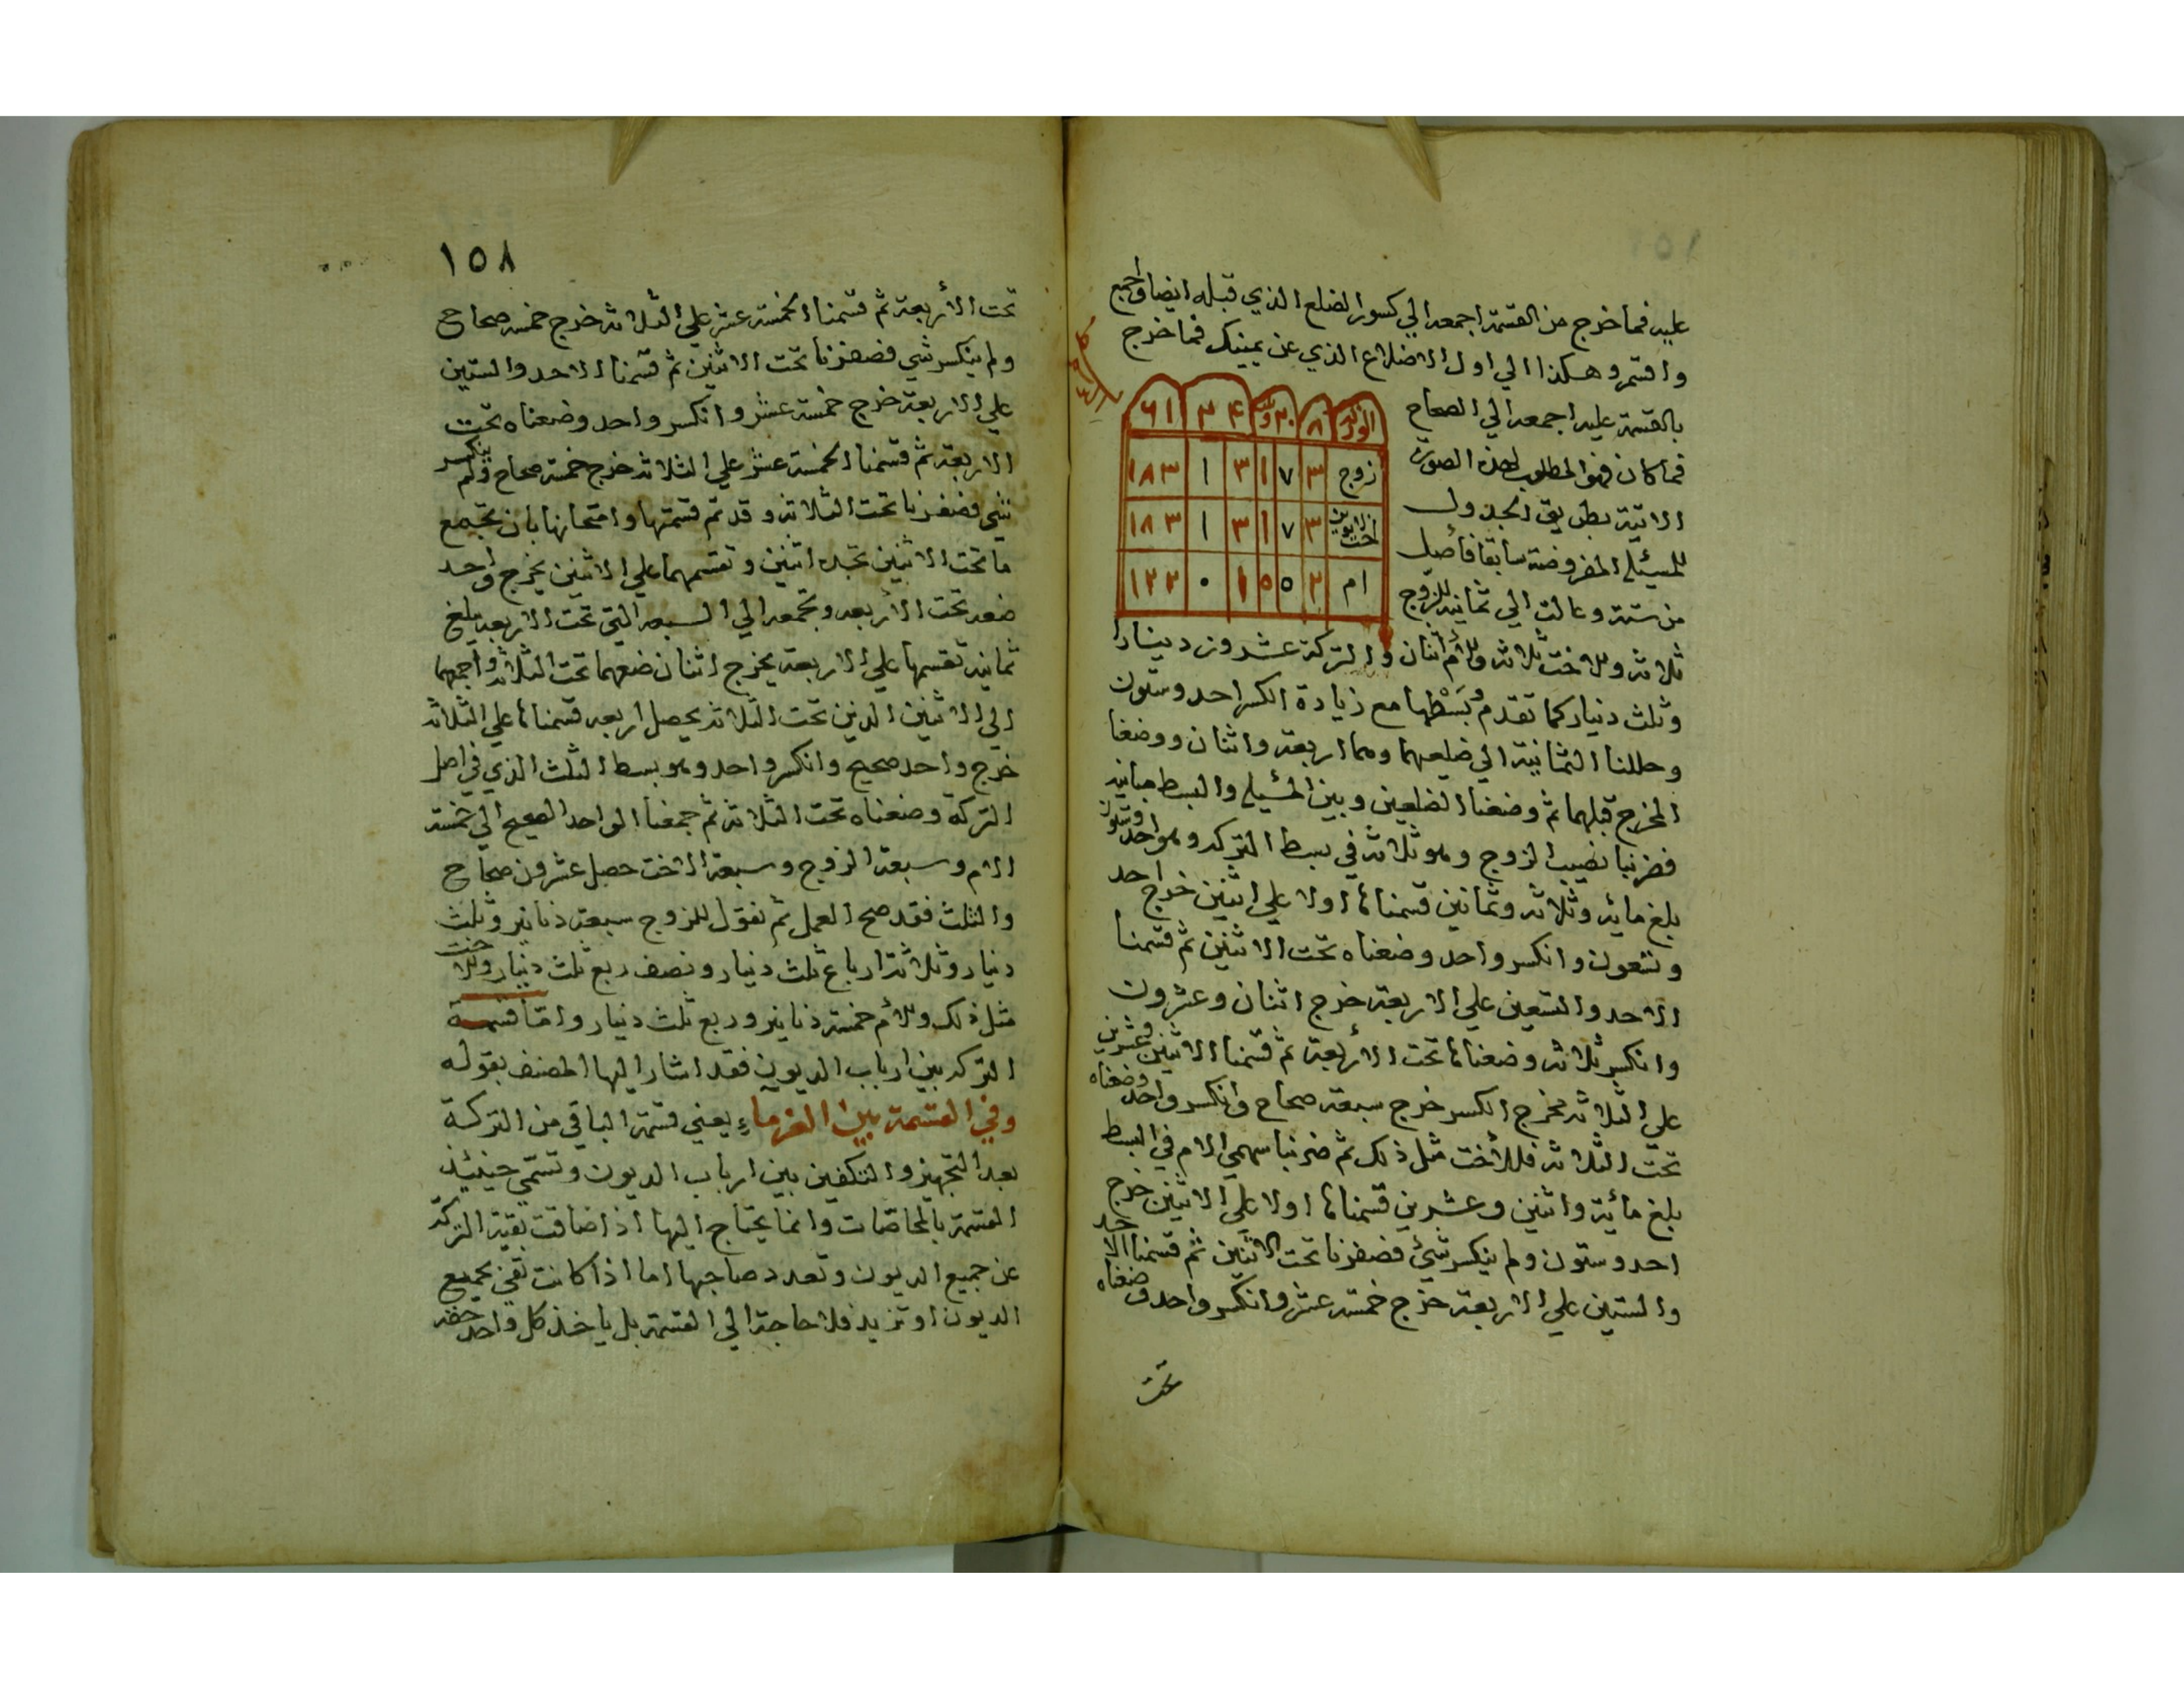 عليه فما خرج من القسمة اجمعه الي كسور الضلع الذي قبله ايضا واجمع
واقسم وهكذا الي اول الاضلاع الذي عن يمينك فما خرج
بالقسمة عليه اجمعه الي الصحاح
فما كان فهو المطلوب لهذه الصورة
الاتية بطريق الجدول
للمسئلة المفروضة سابقا فأصل
من ستة وعالت الي ثمانية للزوج
٨ ٢٠ ٤ ٣ ٦١
زوج ٣ ٧ ١ ٣ ١ ١٨٣
اخت لابوين ٣ ٧ ١ ٣ ١ ١٨٣
ام ٢ ٥ ٥ ١ ٠ ١٢٢
ثلاثة وللاخت ثلاثة وللأم اثنان والتركة عشرون دينارا
وثلث دينار كما تقدم وبسطها مع زيادة الكسر احد وستون
وحللنا الثمانية الي ضلعيهما وهما اربعة واثنان ووضعنا
المخرج قبلهما ثم وضعنا الضلعين وبين المسئلة والبسط مباينة
فضربنا نصيب الزوج وهو ثلاثة في بسط التركه وهو احد وستون
بلغ مائة وثلاثة وثمانين قسمناها اولا علي اثنين خرج احد
وتسعون وانكسر واحد وضعناه تحت الاثنين ثم قسمنا
الاحد والتسعين علي الاربعة خرج اثنان وعشرون
وانكسر ثلاثة وضعناها تحت الأربعة ثم قسمنا الاثنين وعشرين
علي الثلاثة مخرج الكسر خرج سبعة صحاح وانكسر واحد وضعناه
تحت الثلاثة فللأخت مثل ذلك ثم ضربنا سهمي الام في البسط
بلغ مائة واثنين وعشرين قسمناها اولا علي الاثنين خرج
احد وستون ولم ينكسر شئ فضفرنا تحت الاثنين ثم قسمنا الاحد
والستين علي الاربعة خرج خمسة عشر وانكسر واحد وضعناه
تحت
١٥٨
تحت الأربعة ثم قسمنا الخمسة عشر علي الثلاثة خرج خمسة صحاح
ولم ينكسر شي فضفرنا تحت الاثنين ثم قسمنا الاحد والستين
علي الاربعة خرج خمسة عشر وانكسر واحد وضعناه تحت
الاربعة ثم قسمنا الخمسة عشر علي الثلاثة خرج خمسة صحاح ولم ينكسر
شي فضفرنا تحت الثلاثة وقد تم قسمتها وامتحانها بان تجمع
ما تحت الاثنين تجده اثنين وتقسمهما علي الاثنين يخرج واحد
ضعه تحت الأربعه وتجمعه الي السبعه التي تحت الاربعه يبلغ
ثمانية تقسمها علي الاربعة يخرج اثنان ضعهما تحت الثلاثة واجمعهما
الي الاثنين الذين تحت الثلاثة يحصل اربعه قسمناها علي الثلاثة
خرج واحد صحيح وانكسر واحد وهو بسط الثلث الذي في اصل
التركة وضعناه تحت الثلاثة ثم جمعنا الواحد الصحيح الي خمسة
الام وسبعة الزوج وسبعة الاخت حصل عشرون صحاح
والثلث فقد صح العمل ثم نقول للزوج سبعة دنانير وثلث
دينار وثلاثة ارباع ثلث دينار ونصف ربع ثلث دينار وللاخت
مثل ذلك وللأم خمسة دنانير وربع ثلث دينار واما قسمة
التركه بين ارباب الديون فقد اشار اليها المصنف بقوله
وفي القسمة بين الغرماء يعني قسمة الباقي من التركة
بعد التجهيز والتكفين بين ارباب الديون وتسمي حينئذ
القسمة بالمحاصّات وانما يحتاج اليها اذا ضاقت بقية التركة
عن جميع الديون وتعدد صاحبها اما اذا كانت تفي بجميع
الديون او تزيد فلا حاجة الي القسمة بل ياخذ كل واحد حقه